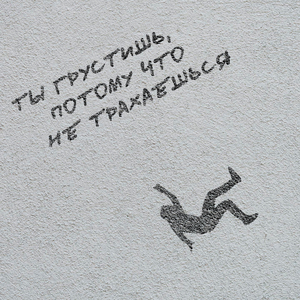 ТЫ ГРУСТИШЬ,
ПОТОМУ ЧТО
НЕ ТРАХАЕШЬСЯ